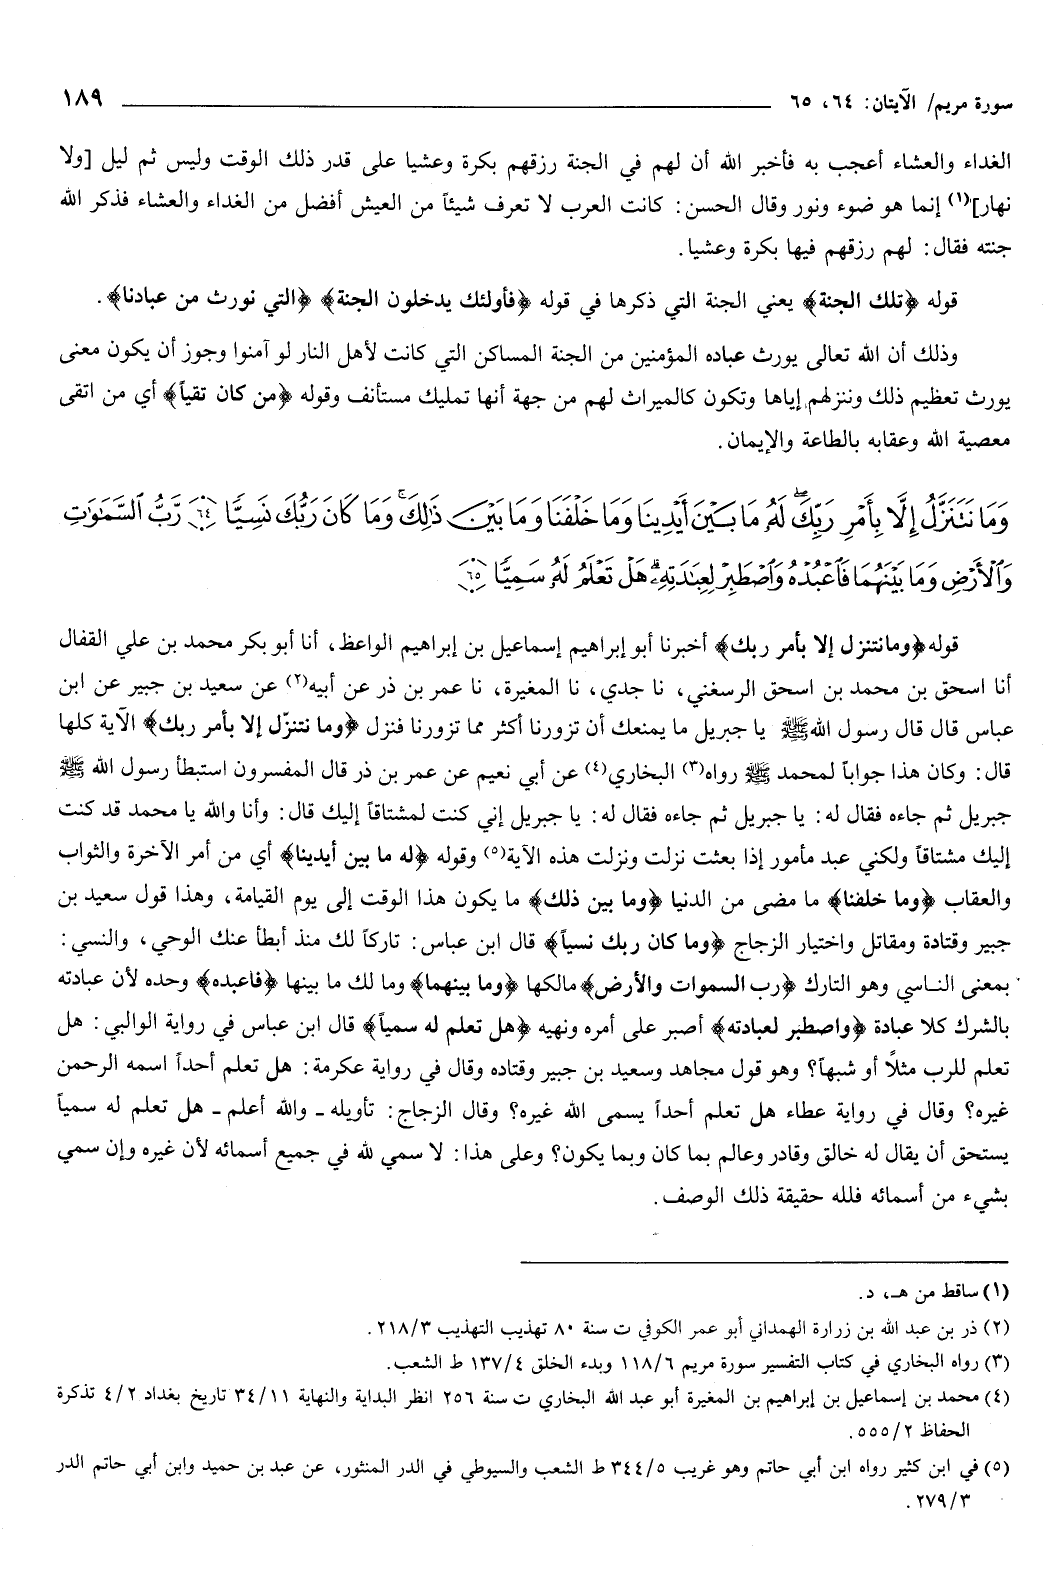 سورة مريم/ الآيتان: ٦٤، ٦٥ ١٨٩
الغداء والعشاء أعجب به فأخبر الله أن لهم في الجنة رزقهم بكرة وعشيا على قدر ذلك الوقت وليس ثم ليل [ولا
نهار]⁽¹⁾ إنما هو ضوء ونور وقال الحسن: كانت العرب لا تعرف شيئاً من العيش أفضل من الغداء والعشاء فذكر الله
جنته فقال: لهم رزقهم فيها بكرة وعشيا.
قوله ﴿تلك الجنة﴾ يعني الجنة التي ذكرها في قوله ﴿فأولئك يدخلون الجنة﴾ ﴿التي نورث من عبادنا﴾.
وذلك أن الله تعالى يورث عباده المؤمنين من الجنة المساكن التي كانت لأهل النار لو آمنوا وجوز أن يكون معنى
يورث تعظيم ذلك وننزلهم إياها وتكون كالميراث لهم من جهة أنها تمليك مستأنف وقوله ﴿من كان تقياً﴾ أي من اتقى
معصية الله وعقابه بالطاعة والإيمان.
وَمَا نَتَنَزَّلُ إِلَّا بِأَمْرِ رَبِّكَ ۖ لَهُ مَا بَيْنَ أَيْدِينَا وَمَا خَلْفَنَا وَمَا بَيْنَ ذَٰلِكَ ۚ وَمَا كَانَ رَبُّكَ نَسِيًّا ﴿٦٤﴾ رَّبُّ السَّمَٰوَٰتِ
وَالْأَرْضِ وَمَا بَيْنَهُمَا فَاعْبُدْهُ وَاصْطَبِرْ لِعِبَٰدَتِهِ ۚ هَلْ تَعْلَمُ لَهُ سَمِيًّا ﴿٦٥﴾
قوله ﴿وما نتنزل إلا بأمر ربك﴾ أخبرنا أبو إبراهيم إسماعيل بن إبراهيم الواعظ، أنا أبو بكر محمد بن علي القفال
أنا اسحق بن محمد بن اسحق الرسغني، نا جدي، نا المغيرة، نا عمر بن ذر عن أبيه⁽²⁾ عن سعيد بن جبير عن ابن
عباس قال قال رسول الله ﷺ يا جبريل ما يمنعك أن تزورنا أكثر مما تزورنا فنزل ﴿وما نتنزّل إلا بأمر ربك﴾ الآية كلها
قال: وكان هذا جواباً لمحمد ﷺ رواه⁽³⁾ البخاري⁽⁴⁾ عن أبي نعيم عن عمر بن ذر قال المفسرون استبطأ رسول الله ﷺ
جبريل ثم جاءه فقال له: يا جبريل ثم جاءه فقال له: يا جبريل إني كنت لمشتاقاً إليك قال: وأنا والله يا محمد قد كنت
إليك مشتاقاً ولكني عبد مأمور إذا بعثت نزلت ونزلت هذه الآية⁽⁵⁾ وقوله ﴿له ما بين أيدينا﴾ أي من أمر الآخرة والثواب
والعقاب ﴿وما خلفنا﴾ ما مضى من الدنيا ﴿وما بين ذلك﴾ ما يكون هذا الوقت إلى يوم القيامة، وهذا قول سعيد بن
جبير وقتادة ومقاتل واختيار الزجاج ﴿وما كان ربك نسياً﴾ قال ابن عباس: تاركاً لك منذ أبطأ عنك الوحي، والنسي:
بمعنى الناسي وهو التارك ﴿رب السموات والأرض﴾ مالكها ﴿وما بينهما﴾ وما لك ما بينها ﴿فاعبده﴾ وحده لأن عبادته
بالشرك كلا عبادة ﴿واصطبر لعبادته﴾ أصبر على أمره ونهيه ﴿هل تعلم له سمياً﴾ قال ابن عباس في رواية الوالبي: هل
تعلم للرب مثلًا أو شبهاً؟ وهو قول مجاهد وسعيد بن جبير وقتاده وقال في رواية عكرمة: هل تعلم أحداً اسمه الرحمن
غيره؟ وقال في رواية عطاء هل تعلم أحداً يسمى الله غيره؟ وقال الزجاج: تأويله - والله أعلم - هل تعلم له سمياً
يستحق أن يقال له خالق وقادر وعالم بما كان وبما يكون؟ وعلى هذا: لا سمي لله في جميع أسمائه لأن غيره وإن سمي
بشيء من أسمائه فلله حقيقة ذلك الوصف.
(١) ساقط من هـ، د.
(٢) ذر بن عبد الله بن زرارة الهمداني أبو عمر الكوفي ت سنة ٨٠ تهذيب التهذيب ٢١٨/٣.
(٣) رواه البخاري في كتاب التفسير سورة مريم ١١٨/٦ وبدء الخلق ١٣٧/٤ ط الشعب.
(٤) محمد بن إسماعيل بن إبراهيم بن المغيرة أبو عبد الله البخاري ت سنة ٢٥٦ انظر البداية والنهاية ٣٤/١١ تاريخ بغداد ٤/٢ تذكرة
الحفاظ ٥٥٥/٢.
(٥) في ابن كثير رواه ابن أبي حاتم وهو غريب ٣٤٤/٥ ط الشعب والسيوطي في الدر المنثور، عن عبد بن حميد وابن أبي حاتم الدر
٢٧٩/٣.